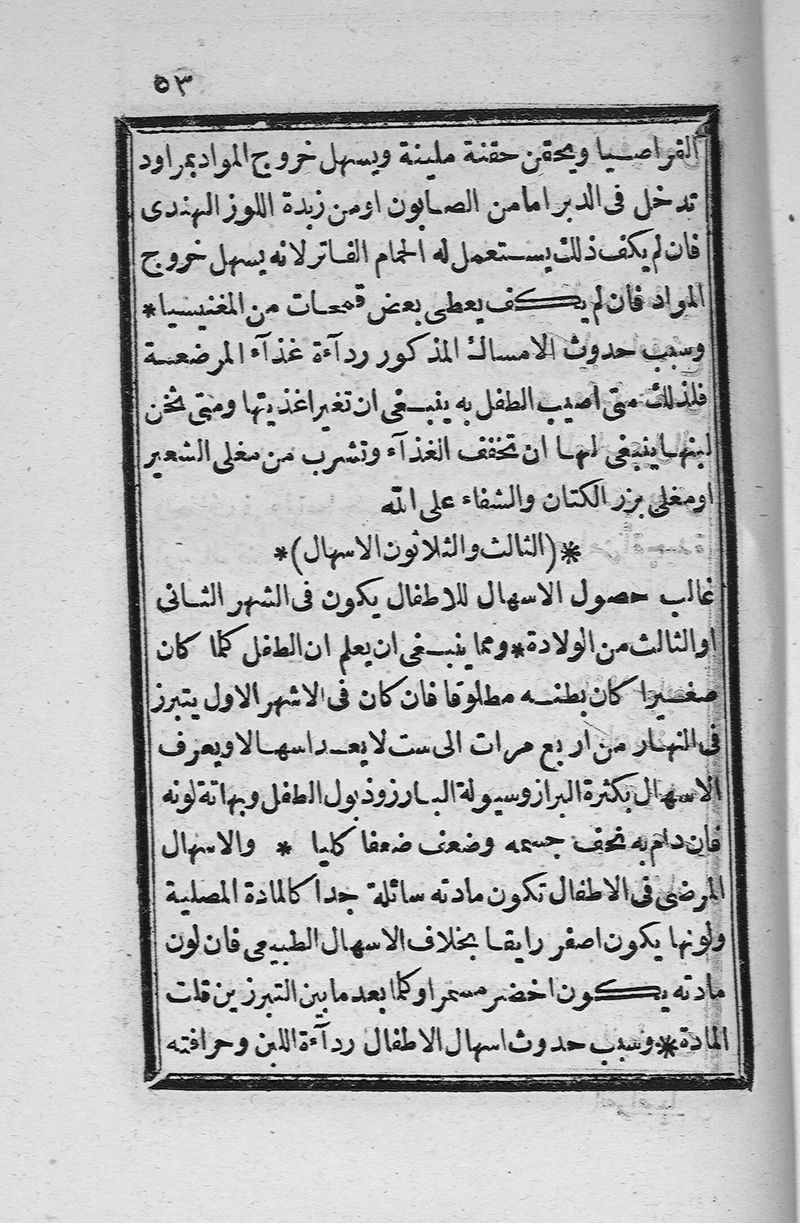 ٥٣
القراصيا ويحقن حقنة ملينة ويسهل خروج المواد بمراود
تدخل فى الدبر اما من الصابون او من زبدة اللوز الهندى
فان لم يكف ذلك يستعمل له الحمام الفاتر لانه يسهل خروج
المواد فان لم يكف يعطى بعض قمحات من المغنيسيا *
وسبب حدوث الامساك المذكور ردآءة غذآء المرضعة
فلذلك متى اصيب الطفل به ينبغى ان تغير اغذيتها ومتى ثخن
لبنها ينبغى لها ان تخفف الغذآء وتشرب من مغلى الشعير
او مغلى بزر الكتان والشفاء على الله
* (الثالث والثلاثون الاسهال) *
غالب حصول الاسهال للاطفال يكون فى الشهر الثانى
او الثالث من الولادة * ومما ينبغى ان يعلم ان الطفل كلما كان
صغيرا كان بطنه مطلوقا فان كان فى الاشهر الاول يتبرز
فى النهار من اربع مرات الى ست لا يعد اسهالا ويعرف
الاسهال بكثرة البراز وسيولة البارز وذبول الطفل وبهاتة لونه
فان دام به نحف جسمه وضعف ضعفا كليا * والاسهال
المرضى فى الاطفال تكون مادته سائلة جدا كالمادة المصلية
ولونها يكون اصفر رايقا بخلاف الاسهال الطبيعى فان لون
مادته يكون اخضر مسمرا وكلما بعد ما بين التبرزين قلت
المادة * وسبب حدوث اسهال الاطفال ردآءة اللبن وحرافته